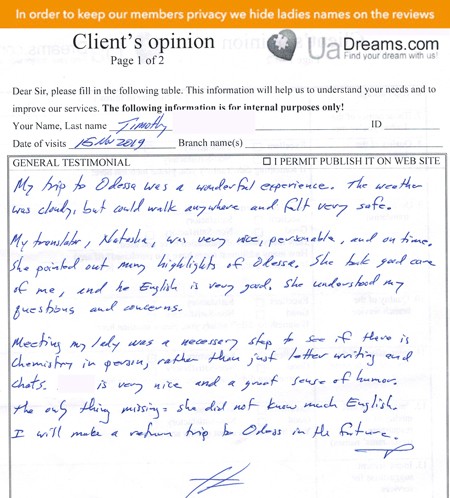 In order to keep our members privacy we hide ladies names on the reviews
Client's opinion
Page 1 of 2
UaDreams.com
Find your dream with us!
Dear Sir, please fill in the following table. This information will help us to understand your needs and to
improve our services. The following information is for internal purposes only!
Your Name, Last name Timothy ID
Date of visits 15 Nov 2019 Branch name(s)
GENERAL TESTIMONIAL ☐ I PERMIT PUBLISH IT ON WEB SITE
My trip to Odessa was a wonderful experience. The weather
was cloudy, but could walk anywhere and felt very safe.
My translator, Natasha, was very nice, personable, and on time.
She pointed out many highlights of Odessa. She took good care
of me, and he English is very good. She understood my
questions and concerns.
Meeting my lady was a necessary step to see if there is
Chemistry in person, rather than just letter writing and
chats. is very nice and a great sense of humor.
the only thing missing = she did not know much English.
I will make a return trip to Odess in the future.